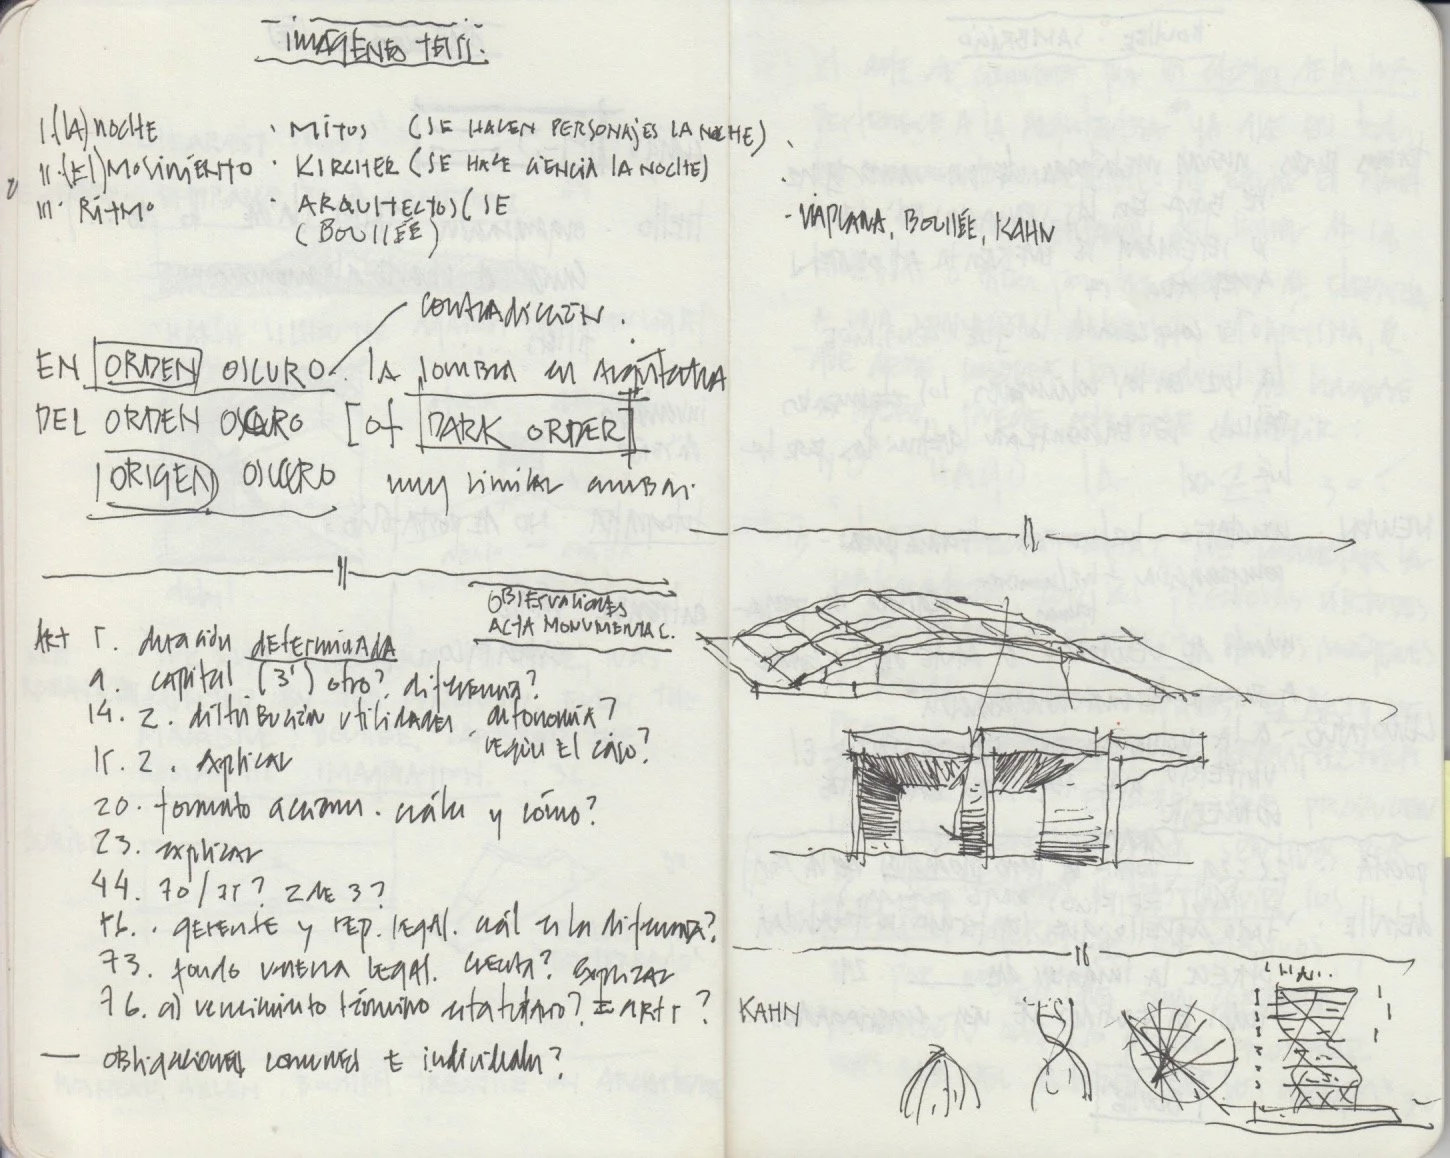 IMÁGENES TESIS.
I.(LA) NOCHE · MITOS (SE HACEN PERSONAJES LA NOCHE)
II.(EL) MOVIMIENTO · KIRCHER (SE HACE CIENCIA LA NOCHE)
III. RITMO · ARQUITECTOS (SE
(BOULLÉE)
- VAPLANA, BOULLÉE, KAHN
CONTRADICCIÓN.
EN ORDEN OSCURO. la sombra en arquitectura
DEL ORDEN OSCURO [of DARK ORDER]
ORIGEN OSCURO muy similar ambas.
OBSERVACIONES
ACTA MONUMENTAL.
ART 5. duración determinada
9. capital (3') otro? diferencia?
14. 2. distribución utilidades, autonomía?
según el caso?
15. 2. explicar
20. formato acciones. cuáles y cómo?
23. explicar
44. 70/75? 2 DE 3?
gerente y rep. legal. cuál es la diferencia?
73. fondo reserva legal. cuenta? explicar
76. a) vencimiento término estatutario? = ART 5?
— obligaciones comunes e individuales?
KAHN